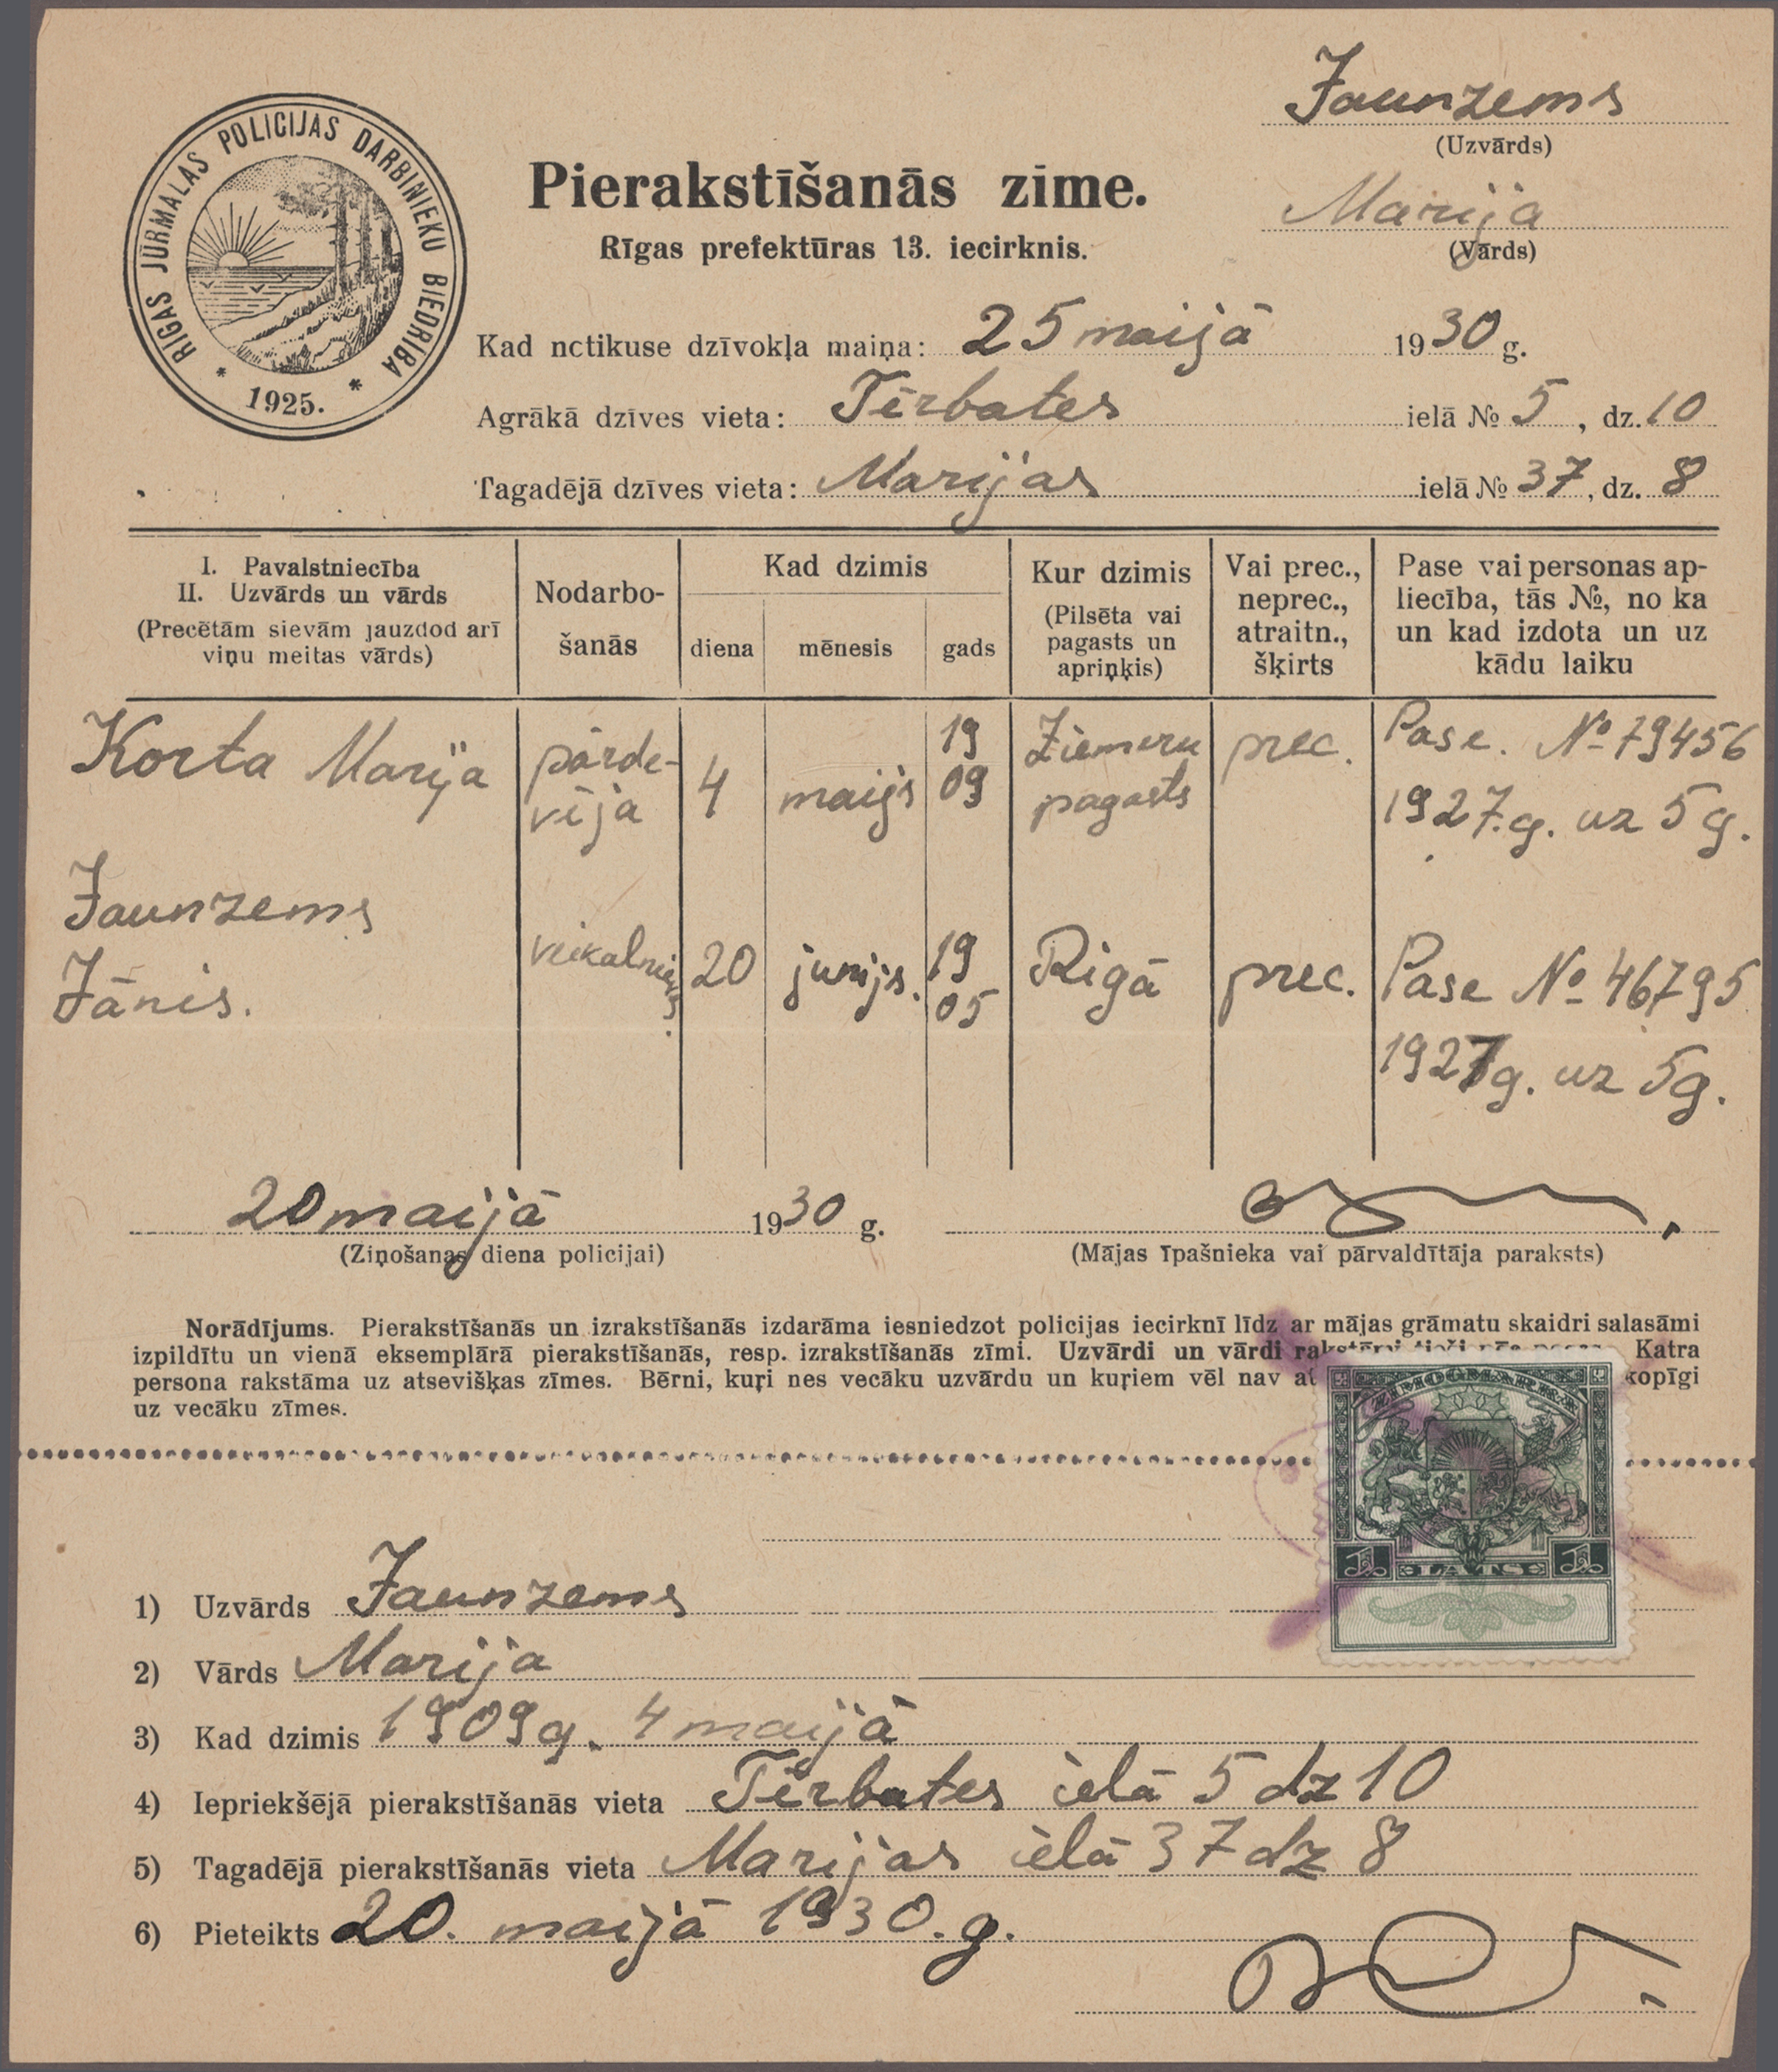 Jaunzems
(Uzvārds)
Marija
(Vārds)
RĪGAS JŪRMALAS POLICIJAS DARBINIEKU BIEDRĪBA
* 1925. *
Pierakstīšanās zīme.
Rīgas prefektūras 13. iecirknis.
Kad nctikuse dzīvokļa maiņa: 25 maijā 1930 g.
Agrākā dzīves vieta: Tērbates ielā № 5, dz. 10
Tagadējā dzīves vieta: Marijas ielā № 37, dz. 8
I. Pavalstniecība
II. Uzvārds un vārds
(Precētām sievām jauzdod arī
viņu meitas vārds)
Nodarbo-
šanās
Kad dzimis
diena mēnesis gads
Kur dzimis
(Pilsēta vai
pagasts un
apriņķis)
Vai prec.,
neprec.,
atraitn.,
šķirts
Pase vai personas ap-
liecība, tās №, no ka
un kad izdota un uz
kādu laiku
Korta Marija
pārde-
vēja
4 maijs
19
09
Ziemeru
pagasts
prec.
Pase. № 79456
1927.g. uz 5 g.
Jaunzems
Jānis.
veikalnieks.
20 junijs.
19
05
Rigā
prec.
Pase № 46795
1927g. uz 5g.
20 maijā 1930 g.
(Ziņošanas diena policijai)
(Mājas īpašnieka vai pārvaldītāja paraksts)
Norādījums. Pierakstīšanās un izrakstīšanās izdarāma iesniedzot policijas iecirknī līdz ar mājas grāmatu skaidri salasāmi
izpildītu un vienā eksemplārā pierakstīšanās, resp. izrakstīšanās zīmi. Uzvārdi un vārdi rakstāmi tieši pēc pases. Katra
persona rakstāma uz atsevišķas zīmes. Bērni, kuŗi nes vecāku uzvārdu un kuŗiem vēl nav kopīgi
uz vecāku zīmes.
ZĪMOGMARKA
1 LATS 1
1) Uzvārds Jaunzems
2) Vārds Marija
3) Kad dzimis 1909g. 4 maijā
4) Iepriekšējā pierakstīšanās vieta Tērbates ielā 5 dz 10
5) Tagadējā pierakstīšanās vieta Marijas ielā 37 dz 8
6) Pieteikts 20. maijā 1930. g.